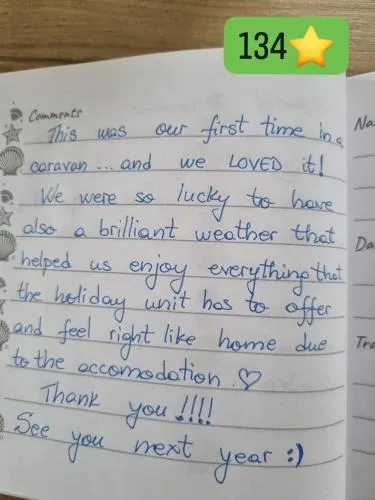 134⭐
Comments
This was our first time in a
caravan... and we LOVED it!
We were so lucky to have
also a brilliant weather that
helped us enjoy everything that
the holiday unit has to offer
and feel right like home due
to the accomodation. ♡
Thank you!!!!
See you next year :)
Na
Da
Tra